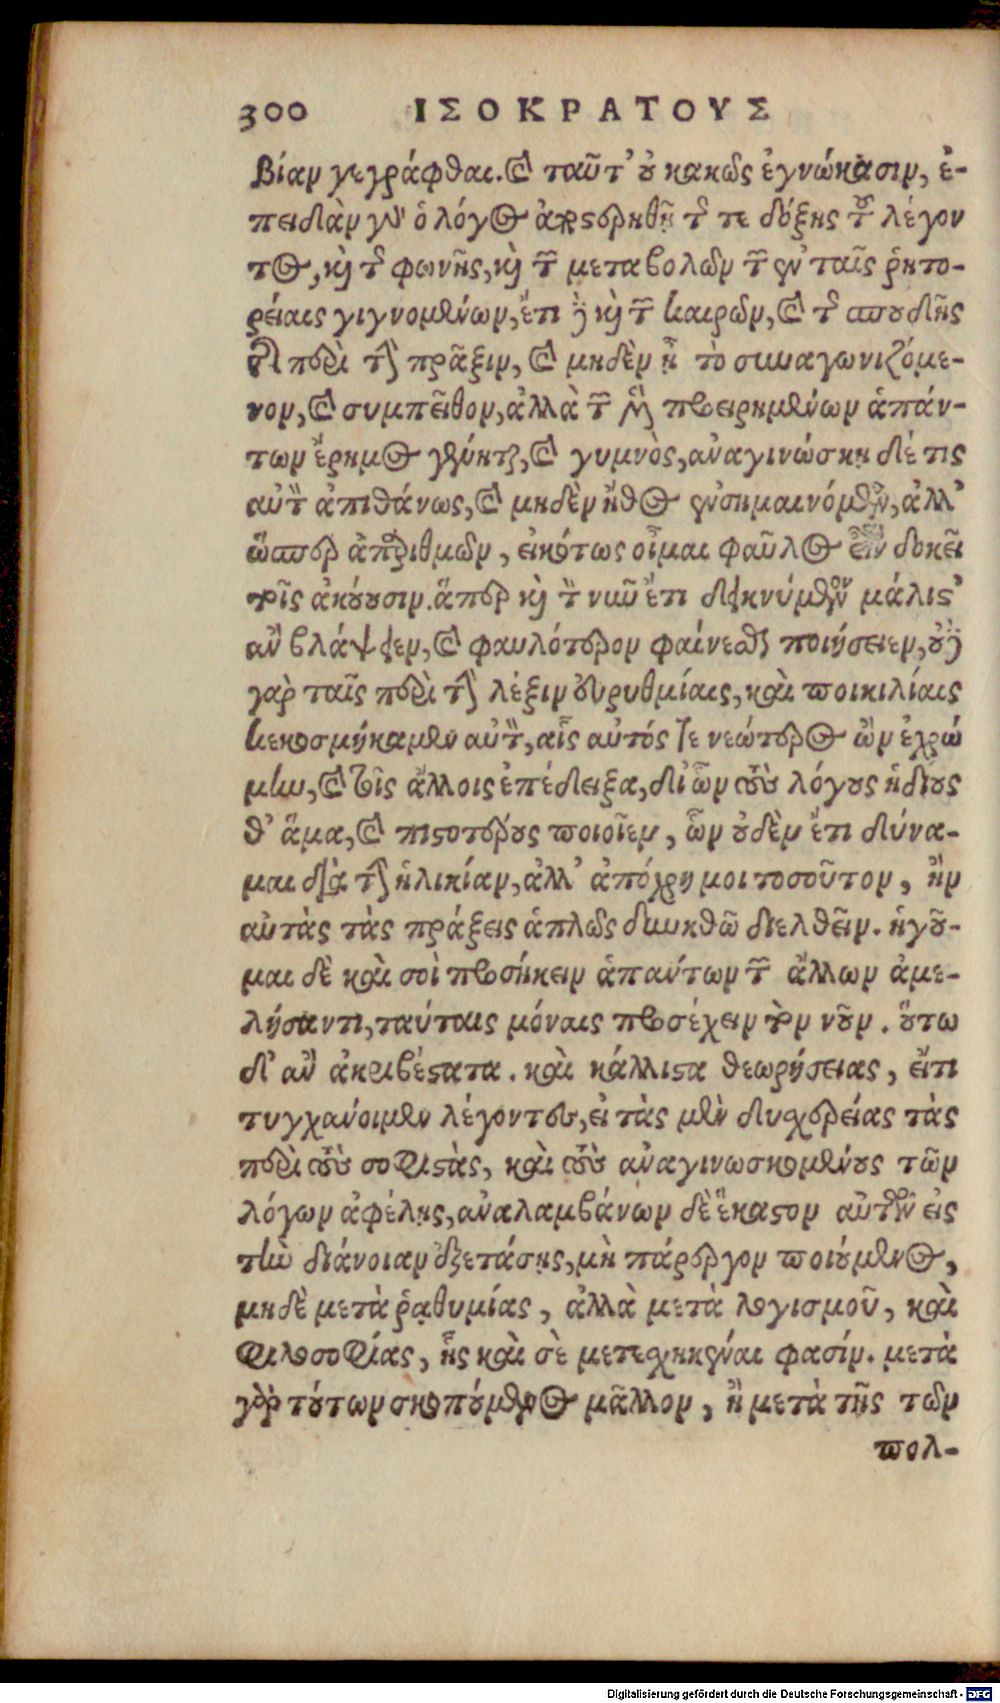 300 ΙΣΟΚΡΑΤΟΥΣ
βίαν γεγράφθαι. καὶ ταῦτ' οὐ κακῶς ἐγνώκασιν, ἐ-
πειδὰν γὰρ ὁ λόγος ἀποστερηθῇ τῆς τε δόξης τοῦ λέγον
τος, καὶ τῆς φωνῆς, καὶ τῶν μεταβολῶν τῶν ἐν ταῖς ῥητο-
ρείαις γιγνομένων, ἔτι δὲ καὶ τῶν καιρῶν, καὶ τῆς σπουδῆς
τῆς περὶ τὴν πρᾶξιν, καὶ μηδὲν ᾖ τὸ συναγωνιζόμε-
νον, καὶ συμπεῖθον, ἀλλὰ τῶν μὲν προειρημένων ἁπάν-
των ἔρημος γένηται, καὶ γυμνὸς, ἀναγινώσκῃ δέ τις
αὐτὸν ἀπιθάνως, καὶ μηδὲν ἦθος ἐνσημαινόμενος, ἀλλ'
ὥσπερ ἀπαριθμῶν, εἰκότως οἶμαι φαῦλος εἶναι δοκεῖ
τοῖς ἀκούουσιν. ἅπερ καὶ τὸν νῦν ἔτι δεικνύμενον μάλιστ'
ἂν βλάψειεν, καὶ φαυλότερον φαίνεσθαι ποιήσειεν, οὐδὲ
γὰρ ταῖς περὶ τὴν λέξιν εὐρυθμίαις, καὶ ποικιλίαις
κεκοσμήκαμεν αὐτὸν, αἷς αὐτός τε νεώτερος ὢν ἐχρώ
μην, καὶ τοῖς ἄλλοις ἐπέδειξα, δι' ὧν τοὺς λόγους ἡδίους
θ' ἅμα, καὶ πιστοτέρους ποιοῖεν, ὧν οὐδὲν ἔτι δύνα-
μαι διὰ τὴν ἡλικίαν, ἀλλ' ἀπόχρη μοι τοσοῦτον, ἢν
αὐτὰς τὰς πράξεις ἁπλῶς δυνηθῶ διελθεῖν. ἡγοῦ-
μαι δὲ καὶ σοὶ προσήκειν ἁπάντων τῶν ἄλλων ἀμε-
λήσαντι, ταύταις μόναις προσέχειν τὸν νοῦν. οὕτω
δ' ἂν ἀκριβέστατα. καὶ κάλλιστα θεωρήσειας, εἴ τι
τυγχάνοιμεν λέγοντες, εἰ τὰς μὲν δυσχερείας τὰς
περὶ τοὺς σοφιστὰς, καὶ τοὺς ἀναγινωσκομένους τῶν
λόγων ἀφέλῃς, ἀναλαμβάνων δὲ ἕκαστον αὐτῶν εἰς
τὴν διάνοιαν ἐξετάσῃς, μὴ πάρεργον ποιούμενος,
μηδὲ μετὰ ῥᾳθυμίας, ἀλλὰ μετὰ λογισμοῦ, καὶ
φιλοσοφίας, ἧς καὶ σὲ μετεσχηκέναι φασίν. μετὰ
γὰρ τούτων σκοπούμενος μᾶλλον, ἢ μετὰ τῆς τῶν
πολ-
Digitalisierung gefördert durch die Deutsche Forschungsgemeinschaft - DFG